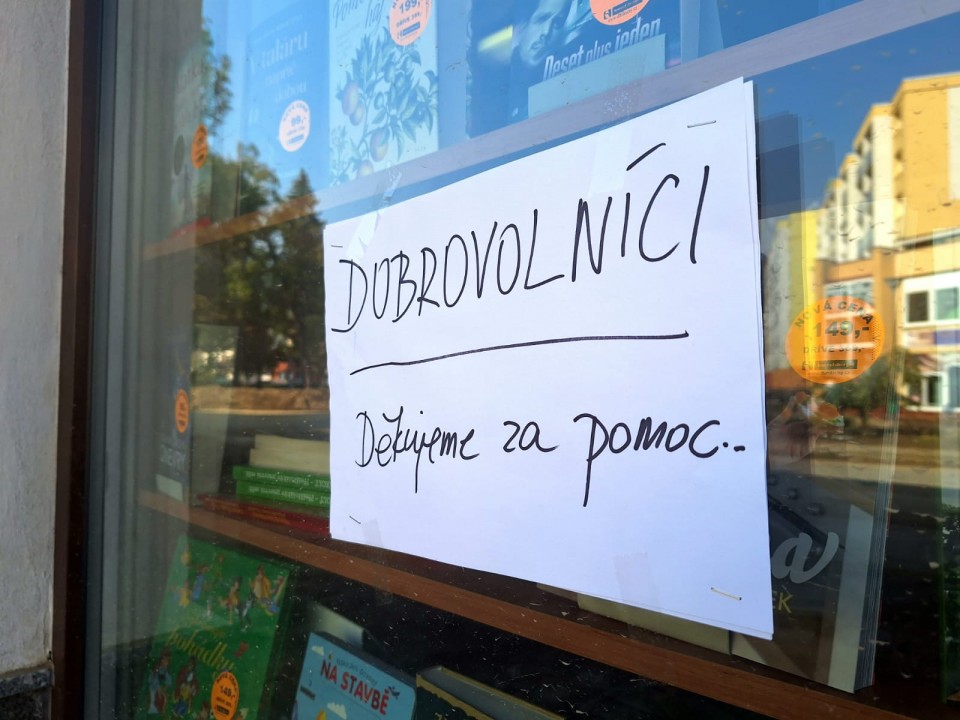 199,-
Deset plus jeden
99,-
DOBROVOLNÍCI
Děkujeme za pomoc..
NOVÁ CENA
149,-
NA STAVBĚ
149,-